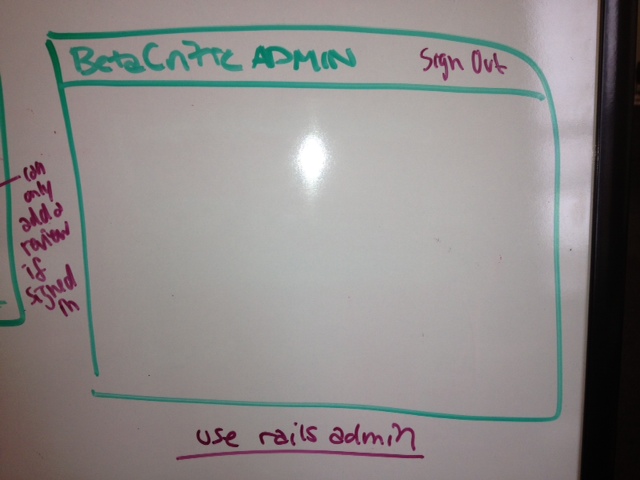 BetaCritic ADMIN
Sign Out
can
only
add a
review
if
signed
in
use rails admin